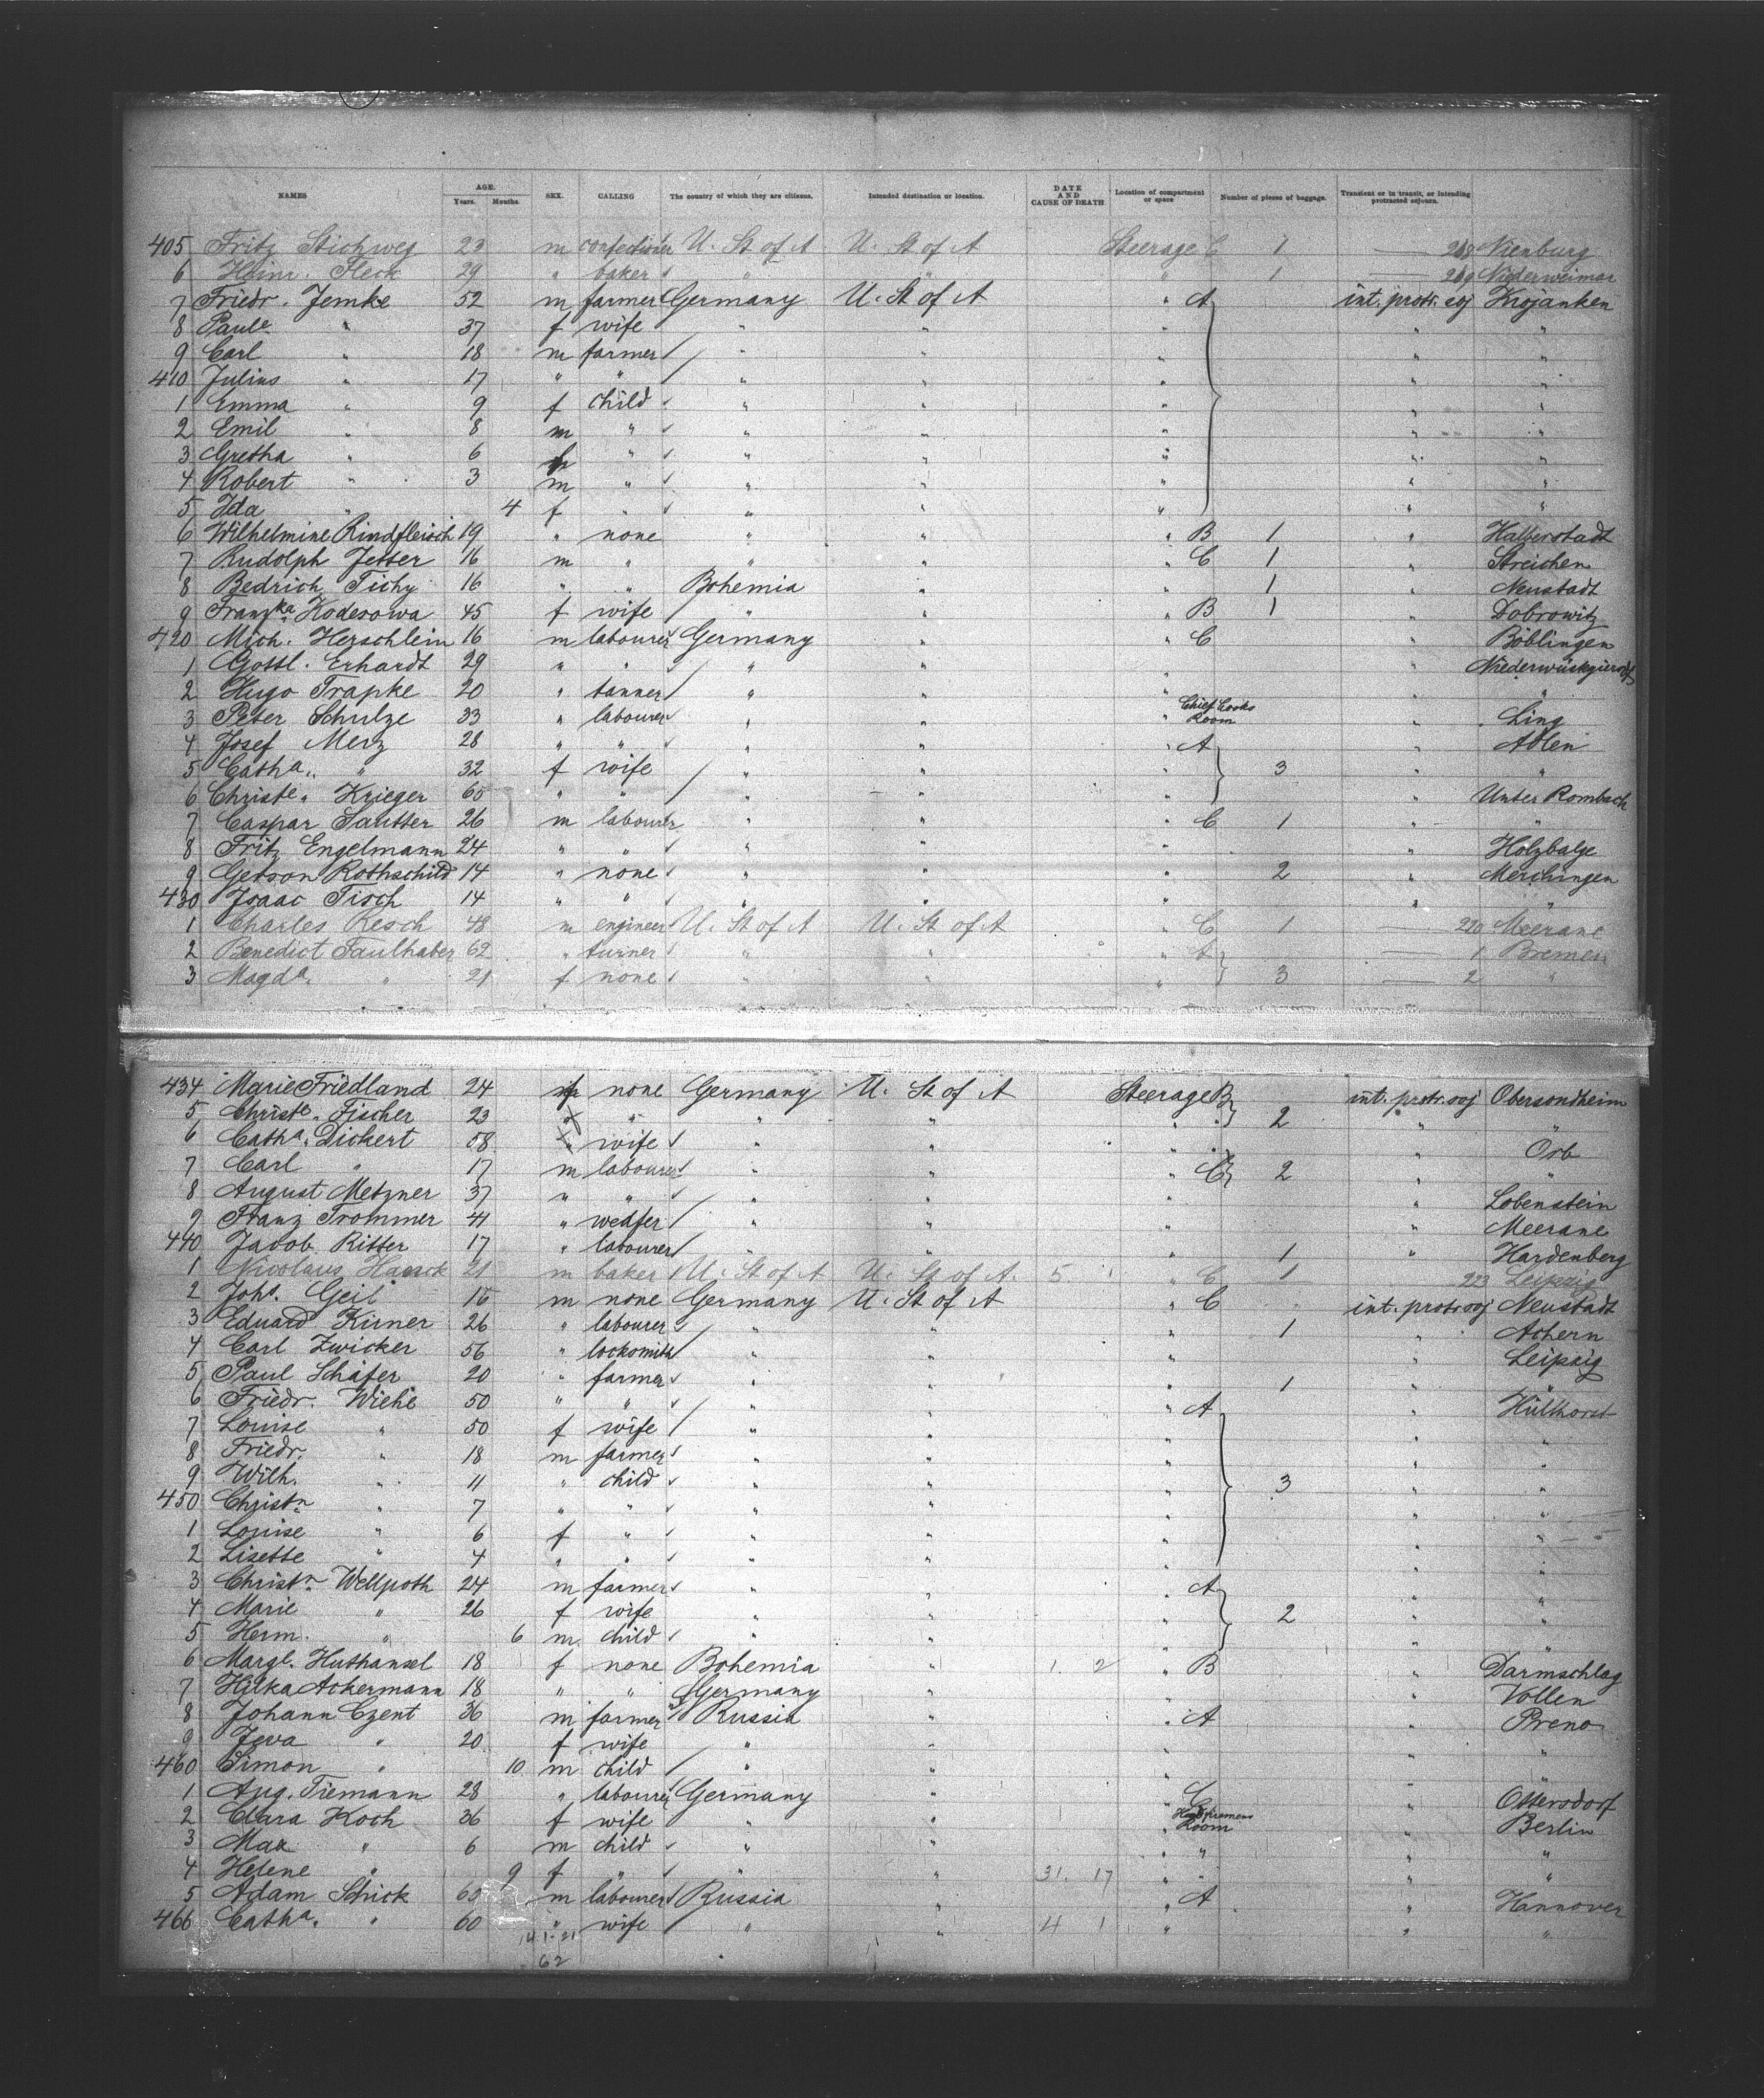 NAMES AGE. Years. Months. SEX. CALLING The country of which they are citizens. Intended destination or location. DATE AND CAUSE OF DEATH Location of compartment or space Number of pieces of baggage. Transient or in transit, or intending protracted sojourn.
405 Fritz Stichweg 23 m confectioner U. St of A U. St of A Steerage C 1 — 268 Nienburg
6 Heinr. Fleck 29 " baker " " " 1 — 269 Niederweimar
7 Friedr. Jemke 52 m farmer Germany U. St of A " A int. protr. soj Krojanken
8 Paule " 37 f wife " " " " "
9 Carl " 18 m farmer " " " " "
410 Julius " 17 " " " " " " "
1 Emma " 9 f child " " " " "
2 Emil " 8 m " " " " " "
3 Gretha " 6 f " " " " " "
4 Robert " 3 m " " " " " "
5 Ida " 4 f " " " " " "
6 Wilhelmine Rindfleisch 19 " none " " " B 1 " Halberstadt
7 Rudolph Jetter 16 m " " " " C 1 " Streichen
8 Bedrich Tichy 16 " " Bohemia " " 1 " Neustadt
9 Franzka Kodesowa 45 f wife " " " B 1 " Dobrowitz
420 Mich. Herschlein 16 m labourer Germany " " C " Böblingen
1 Gottl. Erhardt 29 " " " " " "
2 Hugo Trapke 20 " tanner " " " " "
3 Peter Schulze 33 " labourer " " " Chief Cooks Room " Ling
4 Josef Merz 28 " " " " " A " Ablen
5 Catha. " 32 f wife " " " 3 " "
6 Christe. Krieger 65 " " " " " " Unter Rombach
7 Caspar Sautter 26 m labourer " " " C 1 " "
8 Fritz Engelmann 24 " " " " " " Holzbalge
9 Getson Rothschild 14 " none " " " 2 " Merchingen
430 Isaac Tisch 14 " " " " " " "
1 Charles Resch 48 m engineer U. St of A U. St of A " C 1 — 270 Meerane
2 Benedict Faulhaber 62 " turner " " " A — 1 Bremen
3 Magda. " 21 f none " " " 3 — 2 "
434 Marie Friedland 24 f none Germany U. St of A Steerage B int. protr. soj Obersontheim
5 Christe. Fischer 23 " " " " " " 2 " "
6 Catha. Dickert 58 " wife " " " " " Orb
7 Carl " 17 m labourer " " " C 2 " "
8 August Metzner 37 " " " " " " Lobenstein
9 Franz Trommer 41 " weafer " " " " Meerane
440 Jacob Ritter 17 " labourer " " " 1 " Hardenberg
1 Nicolaus Haack 21 m baker U. St of A U. St of A. 5 " C 1 — 273 Leipzig
2 Johs. Geil 16 m none Germany U. St of A " C int. protr. soj Neustadt
3 Eduard Kirner 26 " labourer " " " 1 " Achern
4 Carl Zwicker 56 " locksmith " " " " Leipzig
5 Paul Schäfer 20 " farmer " " " 1 " "
6 Friedr. Wiehe 50 " " " " " A " Hüllhorst
7 Louise " 50 f wife " " " " "
8 Friedr. " 18 m farmer " " " " "
9 Wilh. " 11 " child " " " 3 " "
450 Christn " 7 " " " " " " "
1 Louise " 6 f " " " " " "
2 Lisette " 4 " " " " " " "
3 Christn. Wellpoth 24 m farmer " " " A " "
4 Marie " 26 f wife " " " 2 " "
5 Herm. " 6 m child " " " " "
6 Margt. Huthansel 18 f none Bohemia " 1. 2 " B " Darmschlag
7 Hilka Ackermann 18 " " Germany " " " Vollen
8 Johann Czent 36 m farmer Russia " " A " Preno
9 Jeva " 20 f wife " " " " "
460 Simon " 10 m child " " " " "
1 Aug. Tiemann 28 " labourer Germany " " C " Ottersdorf
2 Clara Koch 36 f wife " " " Room " Berlin
3 Max " 6 m child " " " " " "
4 Helene " 9 f " " " 31. 17 " " " "
5 Adam Schick 65 m labourer Russia " " A " Hannover
466 Catha. " 60 " wife " " 4 1 " " "
62